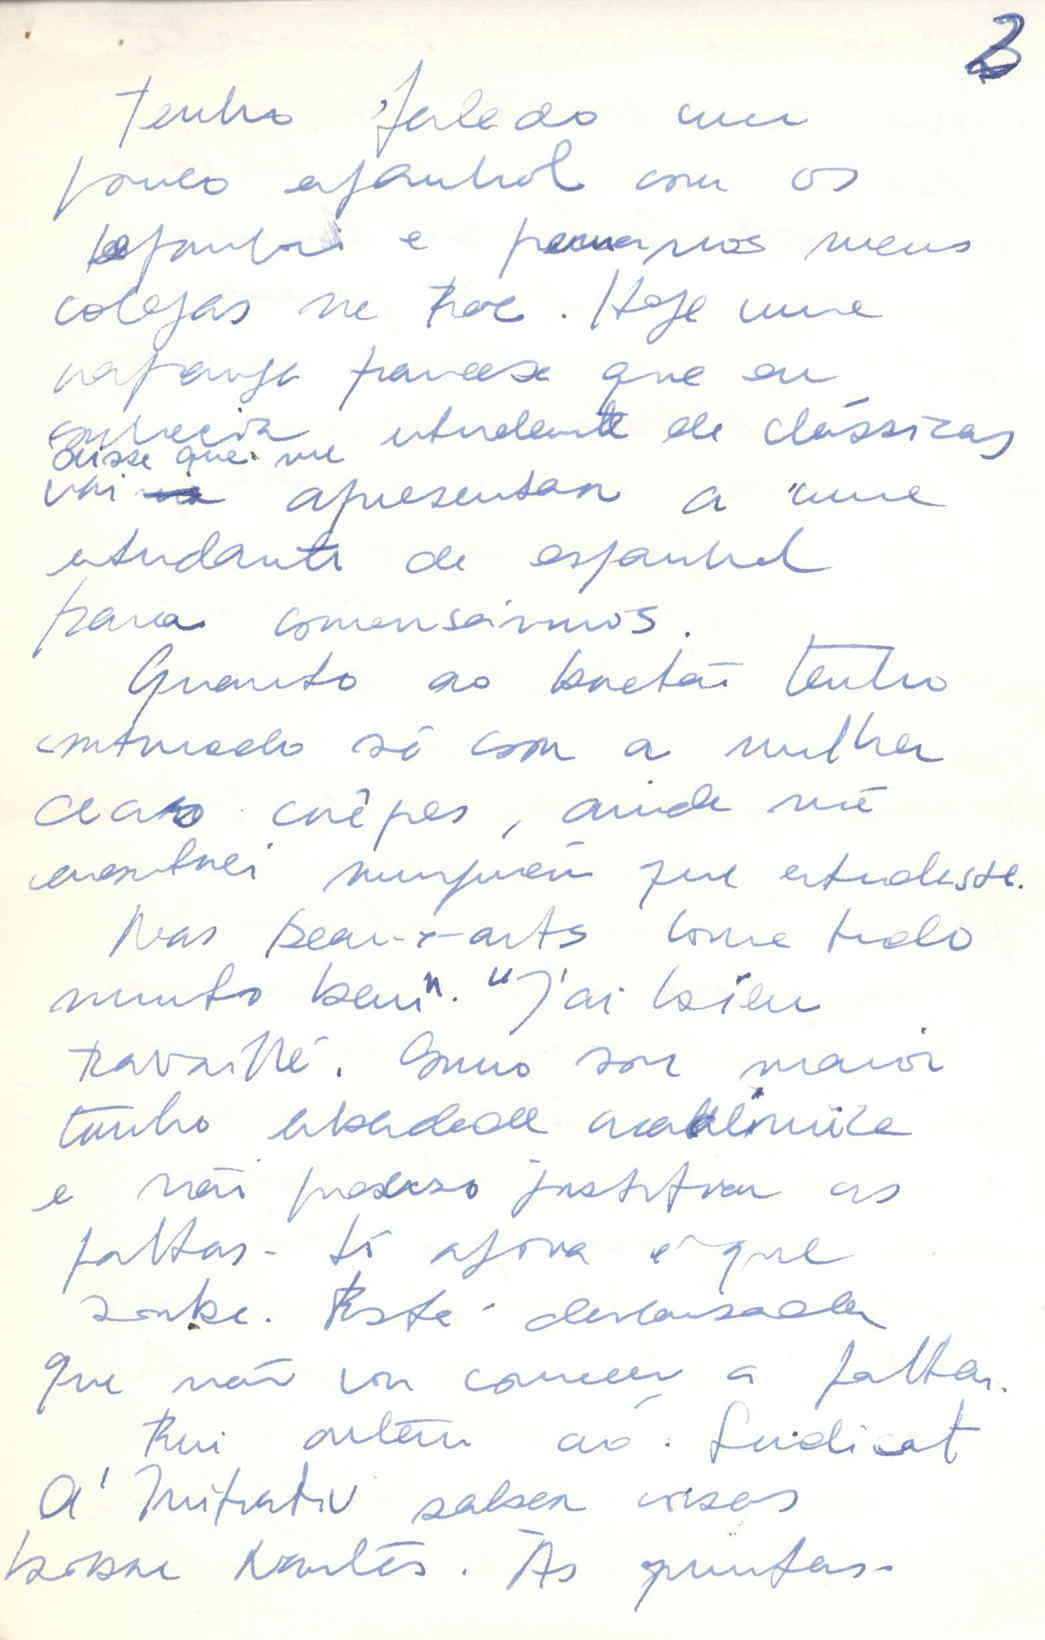 2
Tenho falado um
pouco espanhol com os
espanhois e peruanos meus
colegas na Fac. Hoje uma
rapariga francesa que eu
conhecia estudante de clássicas
disse que me
vai apresentar a uma
estudante de espanhol
para conversarmos.
Quanto ao bretão tenho
contactado só com a mulher
dos crêpes, ainda não
encontrei ninguém que estudasse.
Nas beaux-arts corre tudo
muito bem". "J'ai bien
travaillé. Como sou maior
tenho liberdade académica
e não preciso justificar as
faltas - só agora é que
soube. Está descansada
que não vou começar a faltar.
Fui ontem ao Syndicat
d'Initiativ saber coisas
sobre Nantes. Às quintas-